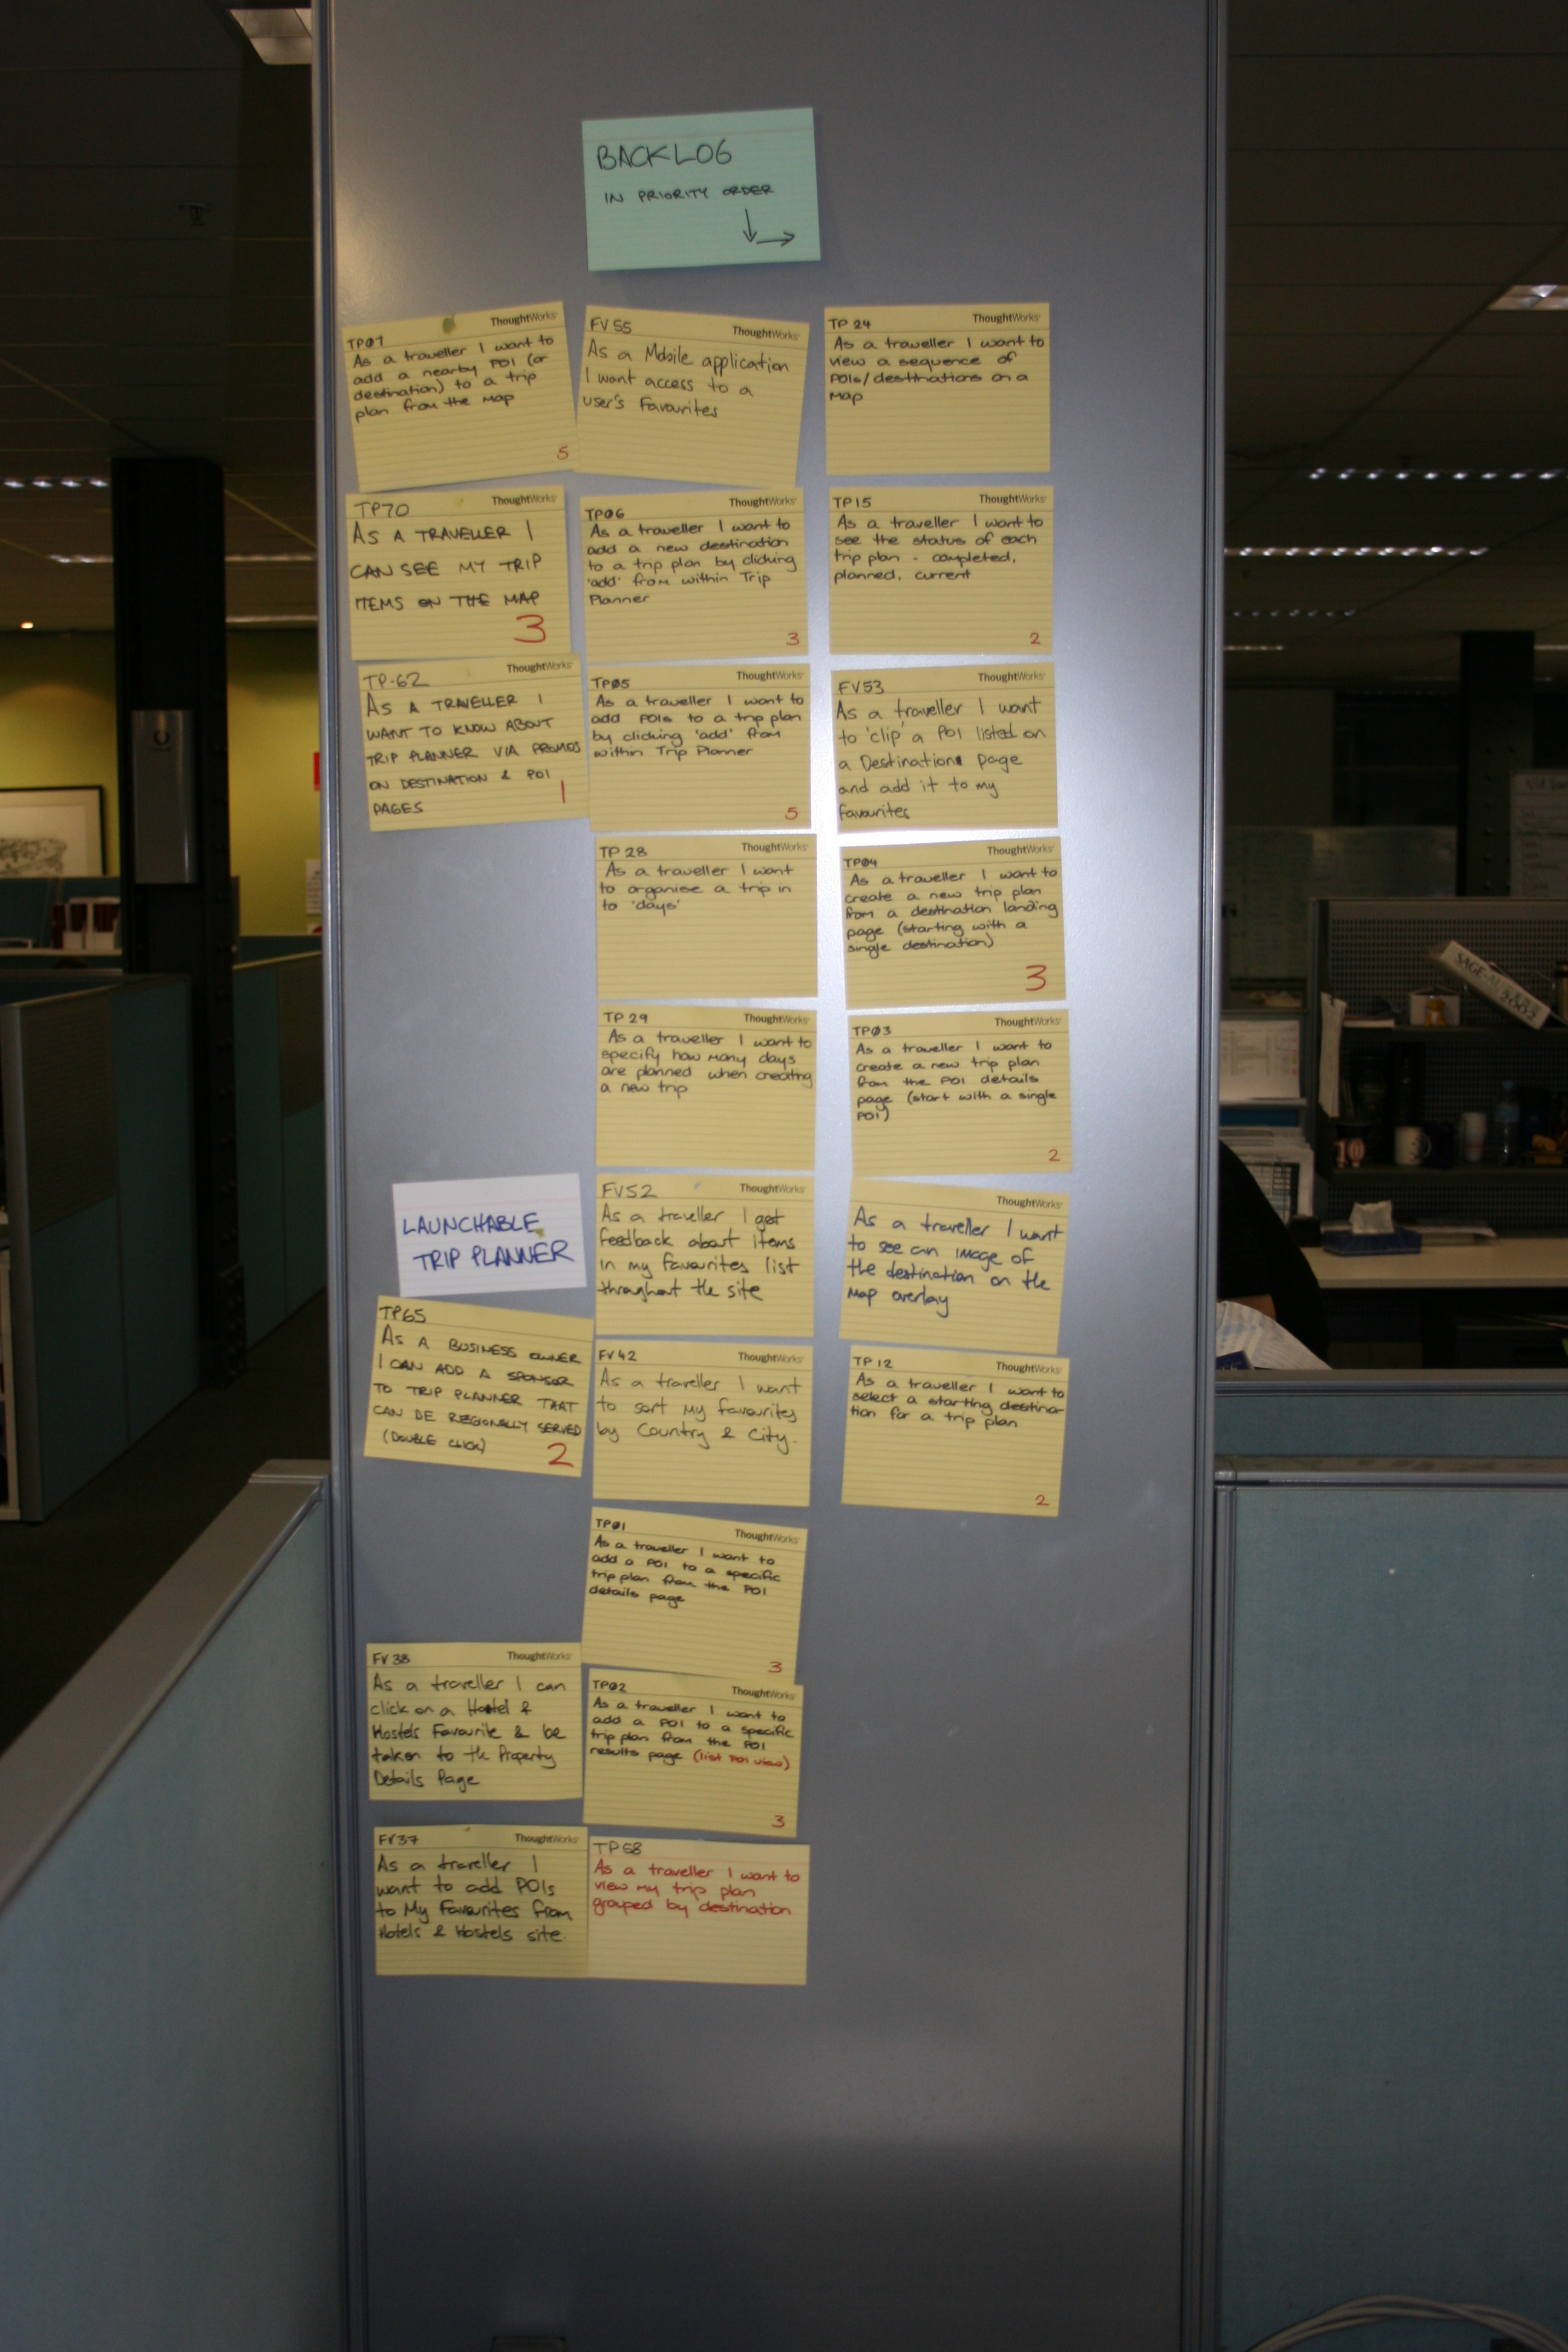 BACKLOG
IN PRIORITY ORDER
ThoughtWorks
TP07
As a traveller I want to
add a nearby POI (or
destination) to a trip
plan from the map
5
ThoughtWorks
TP70
AS A TRAVELLER I
CAN SEE MY TRIP
ITEMS ON THE MAP
3
ThoughtWorks
TP-62
AS A TRAVELLER I
WANT TO KNOW ABOUT
TRIP PLANNER VIA PROMOS
ON DESTINATION & POI
PAGES
1
LAUNCHABLE
TRIP PLANNER
TP65
AS A BUSINESS OWNER
I CAN ADD A SPONSOR
TO TRIP PLANNER THAT
CAN BE REGIONALLY SERVED
(DOUBLE CLICK)
2
FV38 ThoughtWorks
As a traveller I can
click on a Hostel &
Hostels Favourite & be
taken to the Property
Details Page
FV37 ThoughtWorks
As a traveller I
want to add POIs
to My Favourites from
Hotels & Hostels site.
FV55 ThoughtWorks
As a Mobile application
I want access to a
user's Favourites
ThoughtWorks
TP06
As a traveller I want to
add a new destination
to a trip plan by clicking
'add' from within Trip
Planner
3
TP05 ThoughtWorks
As a traveller I want to
add POIs to a trip plan
by clicking 'add' from
within Trip Planner
5
TP 28 ThoughtWorks
As a traveller I want
to organise a trip in
to 'days'
TP 29 ThoughtWorks
As a traveller I want to
specify how many days
are planned when creating
a new trip
FV52 ThoughtWorks
As a traveller I get
feedback about items
in my favourites list
throughout the site
FV42 ThoughtWorks
As a traveller I want
to sort my favourites
by Country & City.
TP01 ThoughtWorks
As a traveller I want to
add a POI to a specific
trip plan from the POI
details page
3
TP02 ThoughtWorks
As a traveller I want to
add a POI to a specific
trip plan from the POI
results page (list POI view)
3
TP68
As a traveller I want to
view my trip plan
grouped by destination
TP 24 ThoughtWorks
As a traveller I want to
view a sequence of
POIs/destinations on a
map
TP15 ThoughtWorks
As a traveller I want to
see the status of each
trip plan - completed,
planned, current
2
FV53 ThoughtWorks
As a traveller I want
to 'clip' a POI listed on
a Destination page
and add it to my
favourites
TP04 ThoughtWorks
As a traveller I want to
create a new trip plan
from a destination landing
page (starting with a
single destination)
3
TP03 ThoughtWorks
As a traveller I want to
create a new trip plan
from the POI details
page (start with a single
POI)
2
ThoughtWorks
As a traveller I want
to see an image of
the destination on the
Map overlay
TP 12 ThoughtWorks
As a traveller I want to
select a starting destina-
tion for a trip plan
2
10